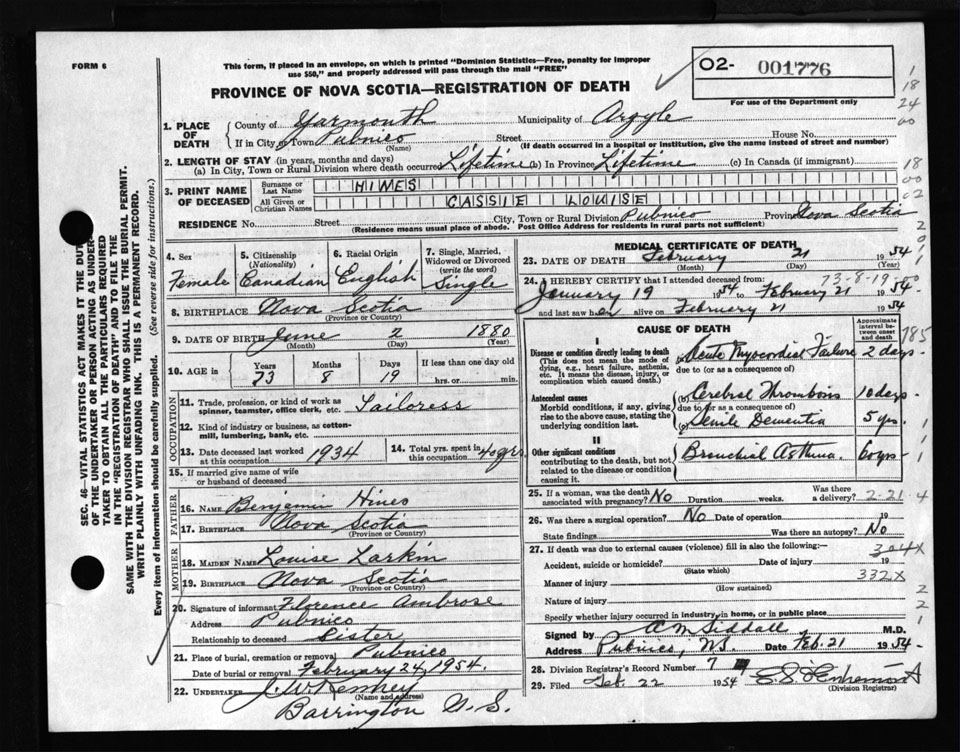 FORM 6
This form, if placed in an envelope, on which is printed "Dominion Statistics—Free, penalty for improper
use $50," and properly addressed will pass through the mail "FREE"
O2- 001776
For use of the Department only
PROVINCE OF NOVA SCOTIA—REGISTRATION OF DEATH
1. PLACE OF DEATH County of Yarmouth Municipality of Argyle
If in City or Town Pubnico Street House No.
(Name) (If death occurred in a hospital or institution, give the name instead of street and number)
2. LENGTH OF STAY (in years, months and days)
(a) In City, Town or Rural Division where death occurred Lifetime (b) In Province Lifetime (c) In Canada (if immigrant)
3. PRINT NAME OF DECEASED Surname or Last Name HINES
All Given or Christian Names CASSIE LOUISE
RESIDENCE No. Street City, Town or Rural Division Pubnico Province Nova Scotia
(Residence means usual place of abode. Post Office Address for residents in rural parts not sufficient)
4. Sex Female
5. Citizenship (Nationality) Canadian
6. Racial Origin English
7. Single, Married, Widowed or Divorced (write the word) Single
8. BIRTHPLACE Nova Scotia
(Province or Country)
9. DATE OF BIRTH June 2 1880
(Month) (Day) (Year)
10. AGE in Years Months Days If less than one day old
73 8 19 hrs. or min.
OCCUPATION
11. Trade, profession, or kind of work as spinner, teamster, office clerk, etc. Tailoress
12. Kind of industry or business, as cotton-mill, lumbering, bank, etc.
13. Date deceased last worked at this occupation 1934
14. Total yrs. spent in this occupation 40 yrs
15. If married give name of wife or husband of deceased
FATHER
16. Name Benjamin Hines
17. Birthplace Nova Scotia
(Province or Country)
MOTHER
18. MAIDEN NAME Louise Larkin
19. Birthplace Nova Scotia
(Province or Country)
20. Signature of informant Florence Ambrose
Address Pubnico
Relationship to deceased Sister
21. Place of burial, cremation or removal Pubnico
Date of burial or removal February 24, 1954.
22. UNDERTAKER J. W. Kenney
(Name and address)
Barrington N. S.
MEDICAL CERTIFICATE OF DEATH
23. DATE OF DEATH February 21 1954
(Month) (Day) (Year)
24. I HEREBY CERTIFY that I attended deceased from: 73-8-19
January 19 1954 to February 21 1954
and last saw her alive on February 21 1954
CAUSE OF DEATH
Approximate interval between onset and death
I
Disease or condition directly leading to death
(This does not mean the mode of dying, e.g., heart failure, asthenia, etc. It means the disease, injury, or complication which caused death.
(a) Acute Myocardial Failure 2 days
due to (or as a consequence of)
Antecedent causes
Morbid conditions, if any, giving rise to the above cause, stating the underlying condition last.
(b) Cerebral Thrombosis 10 days
due to (or as a consequence of)
(c) Senile Dementia 5 yrs.
II
Other significant conditions
contributing to the death, but not related to the disease or condition causing it.
Bronchial Asthma. 60 yrs
785
25. If a woman, was the death associated with pregnancy? No Duration weeks. Was there a delivery? 2-21-4
26. Was there a surgical operation? No Date of operation 19
State findings Was there an autopsy? No
27. If death was due to external causes (violence) fill in also the following:— 304X
Accident, suicide or homicide? Date of injury 19
(State which)
Manner of injury 332X
(How sustained)
Nature of injury
Specify whether injury occurred in industry, in home, or in public place
Signed by A M Siddall M.D.
Address Pubnico, N.S. Date Feb. 21 1954
28. Division Registrar's Record Number 7
29. Filed Feb. 22 1954
(Division Registrar)
SEC. 46—VITAL STATISTICS ACT MAKES IT THE DUTY
OF THE UNDERTAKER OR PERSON ACTING AS UNDER-
TAKER TO OBTAIN ALL THE PARTICULARS REQUIRED
IN THE "REGISTRATION OF DEATH" AND TO FILE THE
SAME WITH THE DIVISION REGISTRAR WHO SHALL ISSUE THE BURIAL PERMIT.
WRITE PLAINLY WITH UNFADING INK. THIS IS A PERMANENT RECORD.
Every item of information should be carefully supplied. (See reverse side for instructions.)